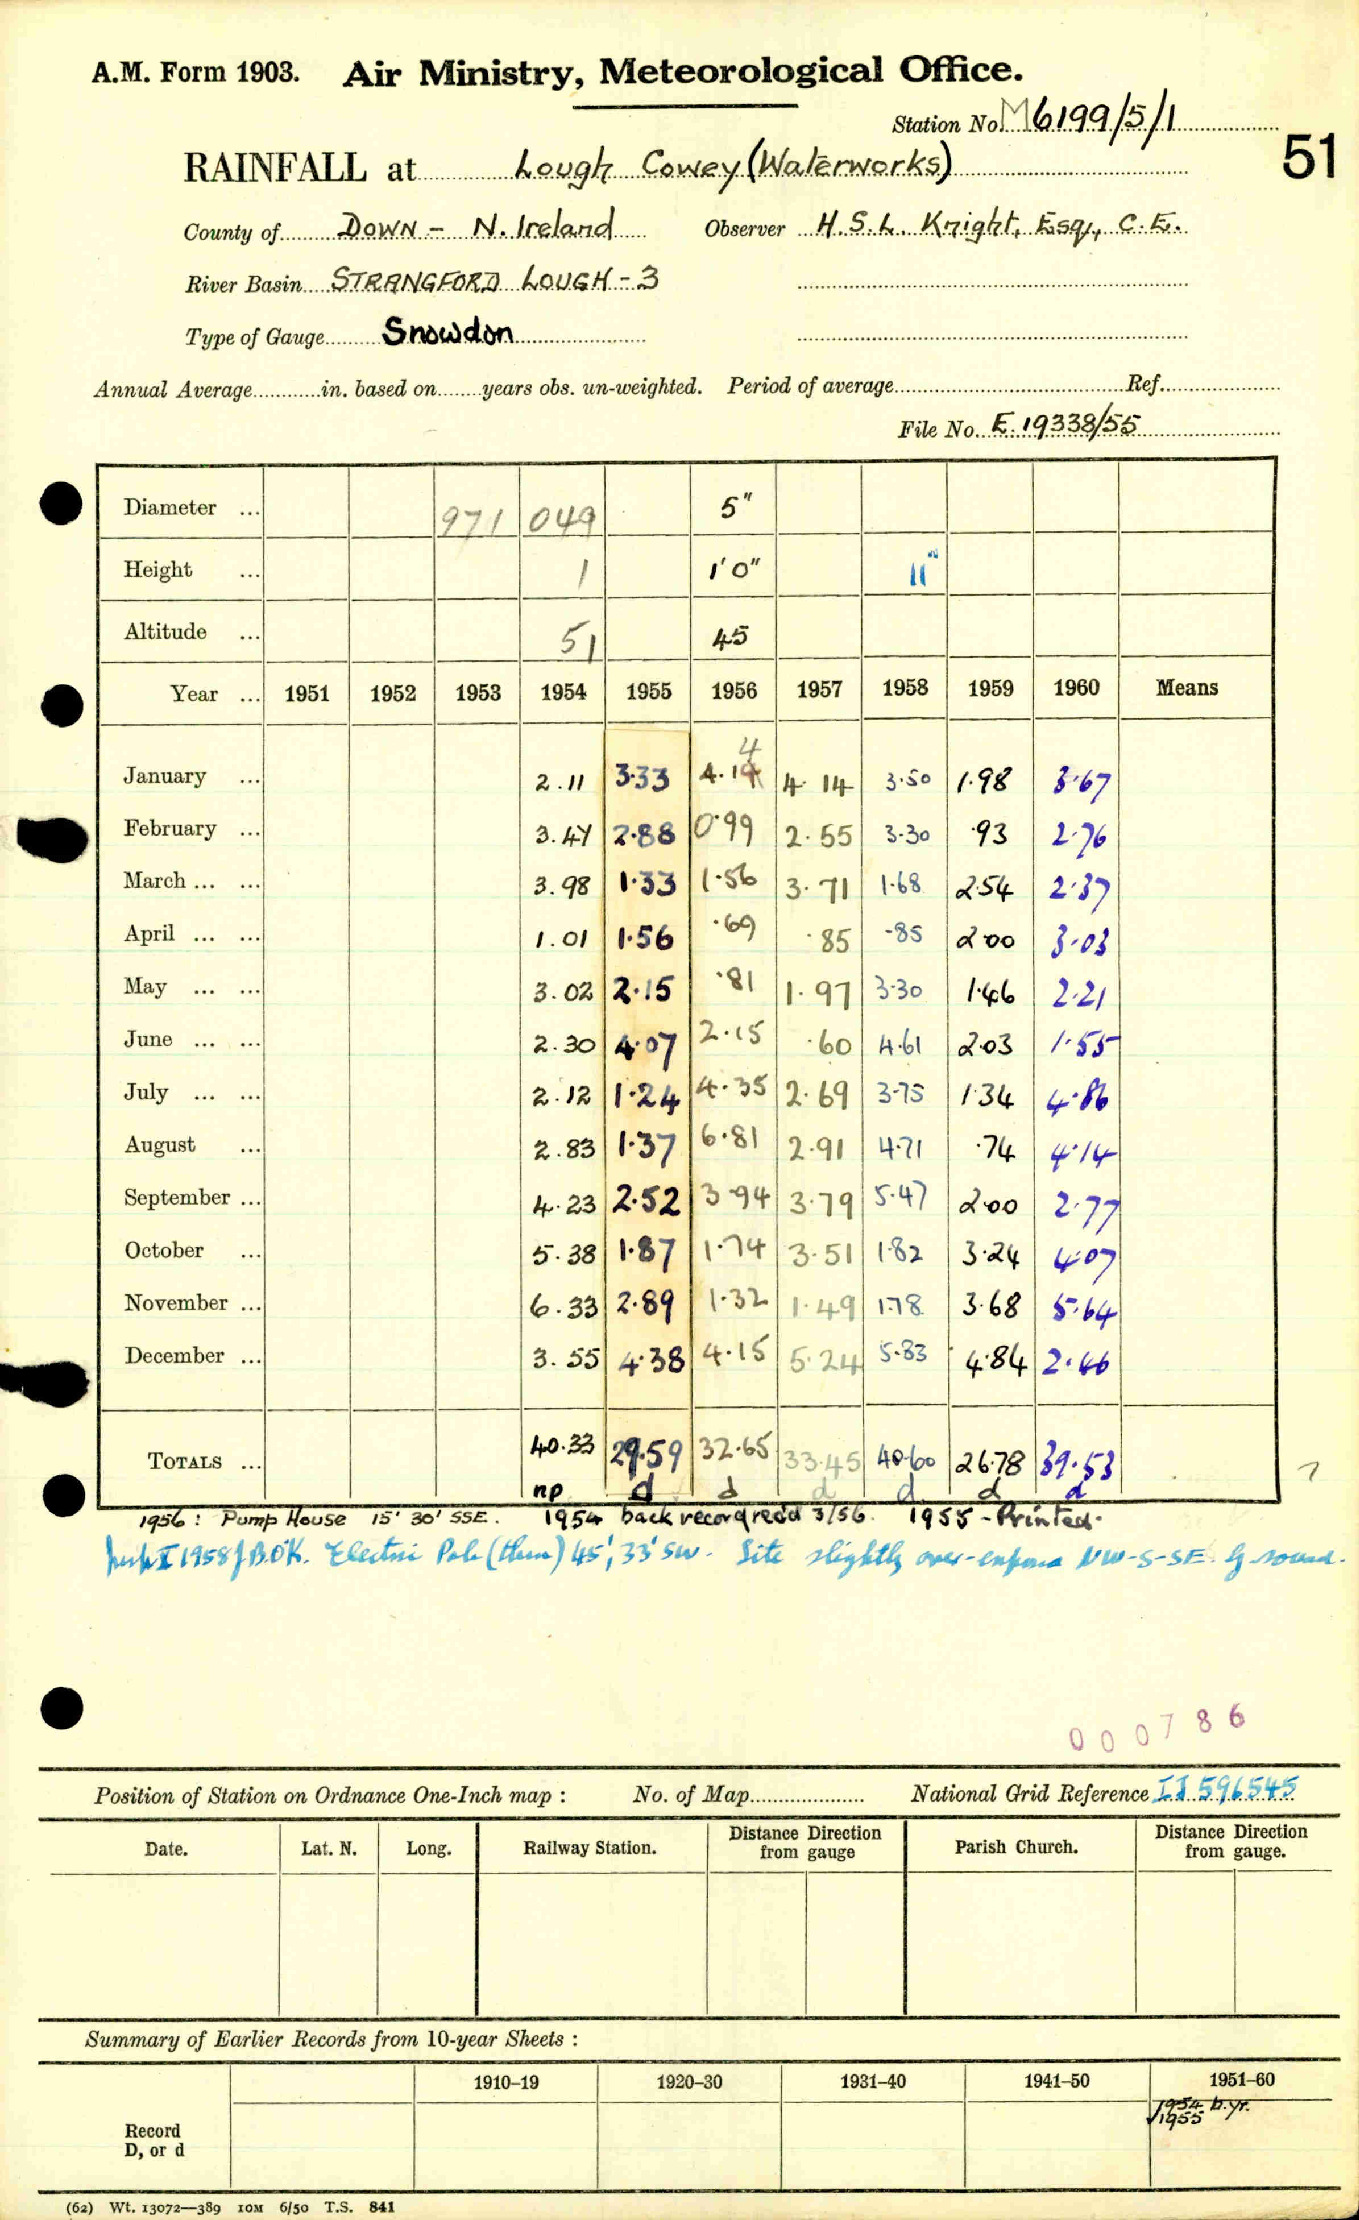 A.M. Form 1903. Air Ministry, Meteorological Office.
Station No. M6199/5/1
51
RAINFALL at Lough Cowey (Waterworks)
County of DOWN - N. Ireland Observer H.S.L. Knight, Esq., C.E.
River Basin STRANGFORD LOUGH - 3
Type of Gauge Snowdon
Annual Average in. based on years obs. un-weighted. Period of average Ref.
File No. E.19338/55
Diameter ... 971 049 5"
Height ... 1 1'0" 11"
Altitude ... 51 45
Year ... 1951 1952 1953 1954 1955 1956 1957 1958 1959 1960 Means
4
January ... 2.11 3.33 4.14 4.14 3.50 1.98 3.67
February ... 3.47 2.88 0.99 2.55 3.30 .93 2.76
March ... ... 3.98 1.33 1.56 3.71 1.68 2.54 2.37
April ... ... 1.01 1.56 .69 .85 .85 2.00 3.03
May ... ... 3.02 2.15 .81 1.97 3.30 1.46 2.21
June ... ... 2.30 4.07 2.15 .60 4.61 2.03 1.55
July ... ... 2.12 1.24 4.35 2.69 3.75 1.34 4.86
August ... 2.83 1.37 6.81 2.91 4.71 .74 4.14
September ... 4.23 2.52 3.94 3.79 5.47 2.00 2.77
October ... 5.38 1.87 1.74 3.51 1.82 3.24 4.07
November ... 6.33 2.89 1.32 1.49 1.78 3.68 5.64
December ... 3.55 4.38 4.15 5.24 5.83 4.84 2.46
TOTALS ... 40.33 29.59 32.65 33.45 40.60 26.78 39.53
np d d d d d d
1956: Pump House 15' 30' SSE. 1954 back record rec'd 3/56. 1955 - Printed.
1958 Electric Pole (thin) 45', 33' SW. Site slightly over-exposed NW-S-SE.
000786
Position of Station on Ordnance One-Inch map : No. of Map National Grid Reference IJ 596545
Date. Lat. N. Long. Railway Station. Distance from gauge Direction Parish Church. Distance from gauge. Direction
Summary of Earlier Records from 10-year Sheets :
1910–19 1920–30 1931–40 1941–50 1951–60
1954 b.yr.
1955
Record
D, or d
(62) Wt. 13072—389 10M 6/50 T.S. 841